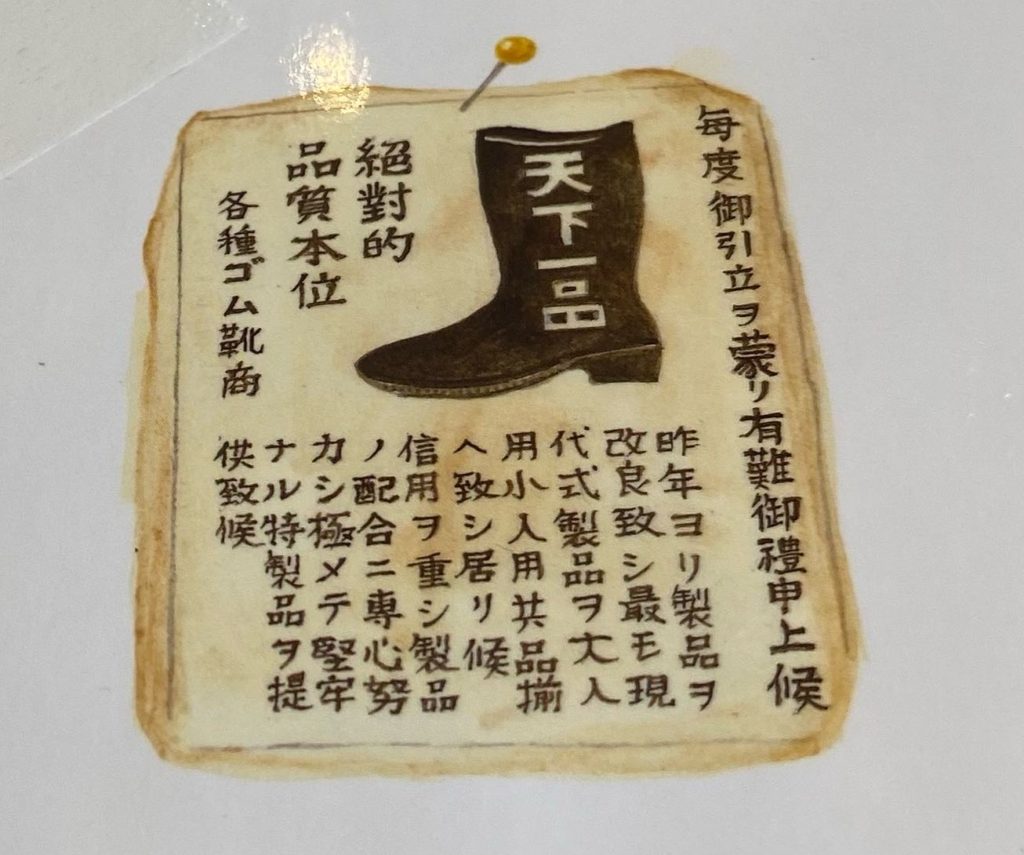 毎度御引立ヲ蒙リ有難御禮申上候
天下一品
絕對的
品質本位
各種ゴム靴商
昨年ヨリ製品ヲ
改良致シ最モ現
代式製品ヲ大人
用小人用共品揃
ヘ致シ居リ候
信用ヲ重シ製品
ノ配合ニ専心努
カシ極メテ堅牢
ナル特製品ヲ提
供致候